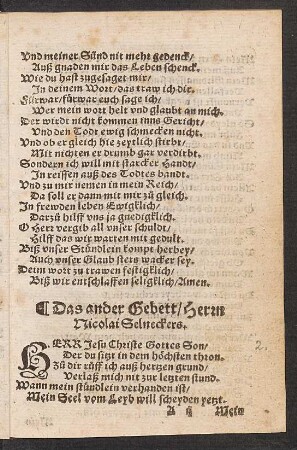 Vnd meiner Sünd nit mehr gedenck/
Auß gnaden mir das Leben schenck.
Wie du hast zugesaget mir/
In deinem Wort/das traw ich dir.
Fürwar/fürwar euch sage ich/
Wer mein wort helt vnd glaubt an mich.
Der wirdt nicht kommen inns Gericht/
Vnd den Todt ewig schmecken nicht.
Vnd ob er gleich hie zeytlich stirbt/
Mit nichten er drumb gar verdirbt.
Sondern ich will mit starcker Handt/
In reissen auß des Todtes bandt.
Vnd zu mir nemen in mein Reich/
Da soll er dann mit mir zu gleich.
In frewden leben Ewigklich/
Darzů hilff vns ja gnedigklich.
O Herr vergib all vnser schuldt/
Hilff das wir warten mit gedult.
Biß vnser Stündlein kompt herbey/
Auch vnser Glaub stets wacker sey.
Deim wort zu trawen festigklich/
Biß wir entschlaffen seligklich/Amen.
¶ Das ander Gebett/Herrn
Nicolai Selneckers.
HERR Jesu Christe Gottes Son/
Der du sitzt in dem höchsten thron.
Zů dir rüff ich auß hertzen grund/
Verlaß mich nit zur letzten stund.
Wann mein stündlein verhanden ist/
Mein Seel vom Leyb will scheyden yetzt.
2.
A ij Mein